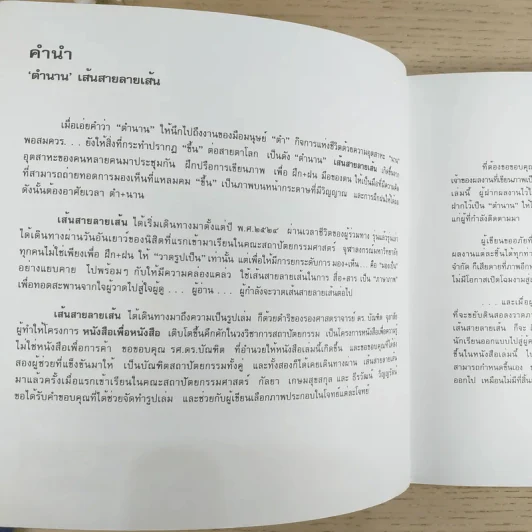 คำนำ
'ตำนาน' เส้นสายลายเส้น
เมื่อเอ่ยคำว่า "ตำนาน" ให้นึกไปถึงงานของมือมนุษย์ "ตำ" กิจการแห่งชีวิตด้วยความอุตสาหะ "นาน"
พอสมควร. . . ยังให้สิ่งที่กระทำปรากฏ "ขึ้น" ต่อสายตาโลก เป็นดัง "ตำนาน" เส้นสายลายเส้น
อุตสาหะของคนหลายคนมาประชุมกัน ฝึกปรือการเขียนภาพ เพื่อ ฝึก+ฝน มือของตน ให้เป็นมือที่มีความคิด
ที่สามารถถ่ายทอดการมองเห็นที่แหลมคม "ขึ้น" เป็นภาพบนหน้ากระดาษที่มีวิญญาณ
ดังนั้นต้องอาศัยเวลา ตำ+นาน
เส้นสายลายเส้น ได้เริ่มเดินทางมาตั้งแต่ปี พ.ศ.๒๕๒๔ ผ่านเวลาชีวิตของผู้ร่วมทาง รุ่นแล้วรุ่นเล่า
ได้เดินทางผ่านวันอันเยาว์ของนิสิตที่แรกเข้ามาเรียนในคณะสถาปัตยกรรมศาสตร์ จุฬาลงกรณ์มหาวิทยาลัย
ทุกคนไม่ใช่เพียงเพื่อ ฝึก+ฝน ให้ "วาดรูปเป็น" เท่านั้น แต่เพื่อให้มีการยกระดับการ มอง+เห็น . . . คือ "มองเป็น"
อย่างแยบคาย ไปพร้อมๆ กับให้มีความคล่องแคล่ว ใช้เส้นสายลายเส้นในการ สื่อ+สาร เป็น "ภาษาภาพ"
เพื่อทอดสะพานจากใจผู้วาดไปสู่ใจผู้ดู . . . ผู้อ่าน . . . ผู้กำลังจะวาดเส้นสายลายเส้นต่อไป
เส้นสายลายเส้น ได้เดินทางมาถึงความเป็นรูปเล่ม ก็ด้วยดำริของรองศาสตราจารย์ ดร. บัณฑิต จุลาสัย
ผู้ทำให้โครงการ หนังสือเพื่อหนังสือ เติบโตขึ้นคึกคักในวงวิชาการสถาปัตยกรรม เป็นโครงการหนังสือเพื่อความรู้
ไม่ใช่หนังสือเพื่อการค้า ขอขอบคุณ รศ.ดร.บัณฑิต ที่อำนวยให้หนังสือเล่มนี้เกิดขึ้น และขอขอบคุณผู้ใส่ใจ
สองผู้ช่วยที่แข็งขันมาให้ เป็นบัณฑิตสถาปัตยกรรมทั้งคู่ และทั้งสองก็ได้เคยเดินทางผ่าน เส้นสายลายเส้น
มาแล้วครั้งเมื่อแรกเข้าเรียนในคณะสถาปัตยกรรมศาสตร์ กัลยา เกษมสุขสกุล และ ธีรวัฒน์
ขอได้รับคำขอบคุณที่ได้ช่วยจัดทำรูปเล่ม และช่วยกับผู้เขียนเลือกภาพประกอบในโจทย์แต่ละโจทย์
ที่ต้องขอขอบคุณ
เจ้าของผลงานที่เขียนภาพ
เล่มนี้ ผู้ฝากผลงานไว้
ฝากไว้เป็น "ตำนาน" ให้
แก่ผู้ที่กำลังติดตามมา
ผู้เขียนขออภัยที่
ผลงานแต่ละชิ้นได้ทุก
จำกัด ก็เสียดายที่ภาพอีก
ไม่มีโอกาสเปิดโฉมงามสู่
. . . และเมื่อผู้
ที่จะขยับดินสอลงวาดภาพ
เส้นสายลายเส้น ก็จะ
นักเรียนออกแบบไปสู่
ขึ้นในหนังสือเล่มนี้
สามารถกำหนดขึ้นเอง
ออกไป เหมือนไม่มีที่สิ้น